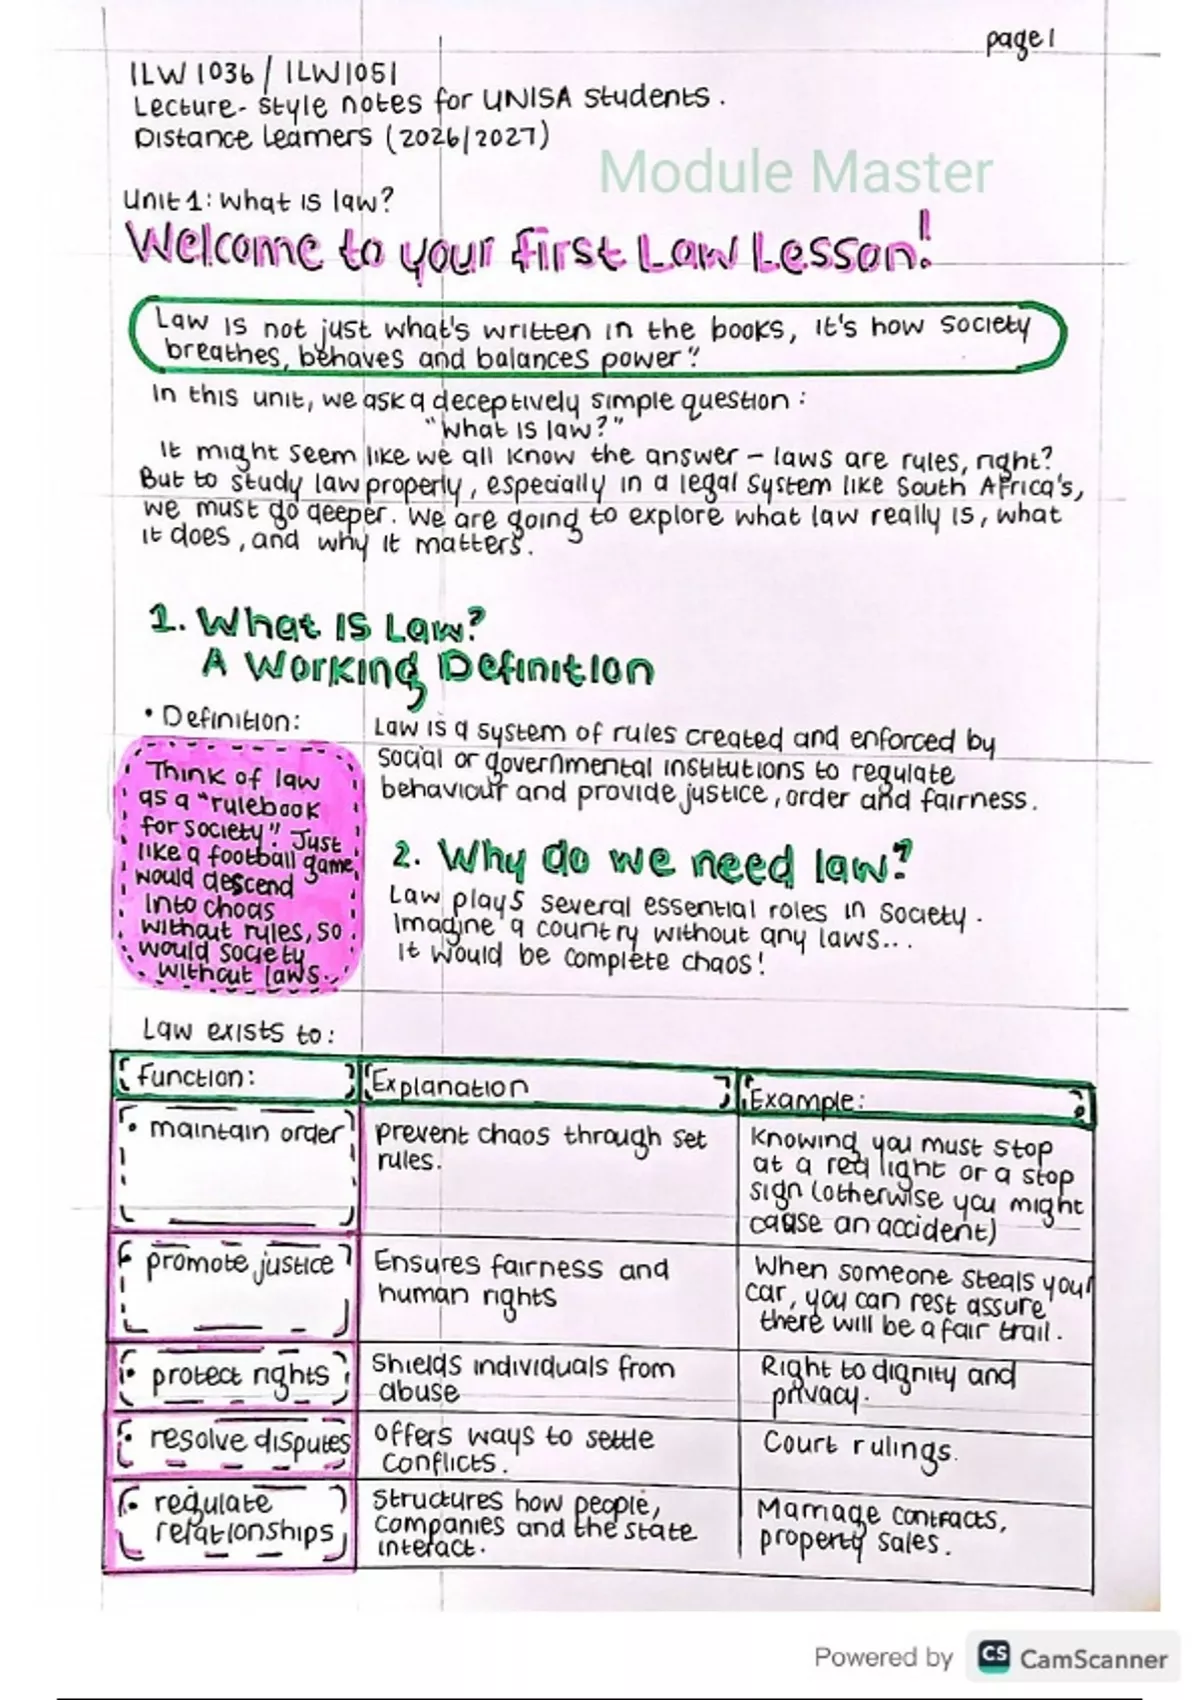 page 1
ILW 1036 / ILW1051
Lecture-style notes for UNISA students.
Distance Learners (2026/2027)
Module Master
Unit 1: What is law?
Welcome to your first Law Lesson!
Law is not just what's written in the books, it's how society
breathes, behaves and balances power."
In this unit, we ask a deceptively simple question:
"What is law?"
It might seem like we all know the answer – laws are rules, right?
But to study law properly, especially in a legal system like South Africa's,
we must go deeper. We are going to explore what law really is, what
it does, and why it matters.
1. What is Law?
A Working Definition
• Definition:
Law is a system of rules created and enforced by
social or governmental institutions to regulate
behaviour and provide justice, order and fairness.
Think of law
as a "rulebook
for society". Just
like a football game
would descend
into choas
without rules, so
would society
without laws.
2. Why do we need law?
Law plays several essential roles in society.
Imagine a country without any laws...
It would be complete chaos!
Law exists to:
function:
Explanation
Example:
• maintain order
prevent chaos through set
rules.
Knowing you must stop
at a red light or a stop
sign (otherwise you might
cause an accident)
• promote justice
Ensures fairness and
human rights
When someone steals your
car, you can rest assure
there will be a fair trail.
• protect rights
Shields individuals from
abuse
Right to dignity and
privacy.
• resolve disputes
offers ways to settle
conflicts.
Court rulings.
• regulate
relationships
Structures how people,
companies and the state
interact.
Marriage contracts,
property sales.
Powered by CS CamScanner